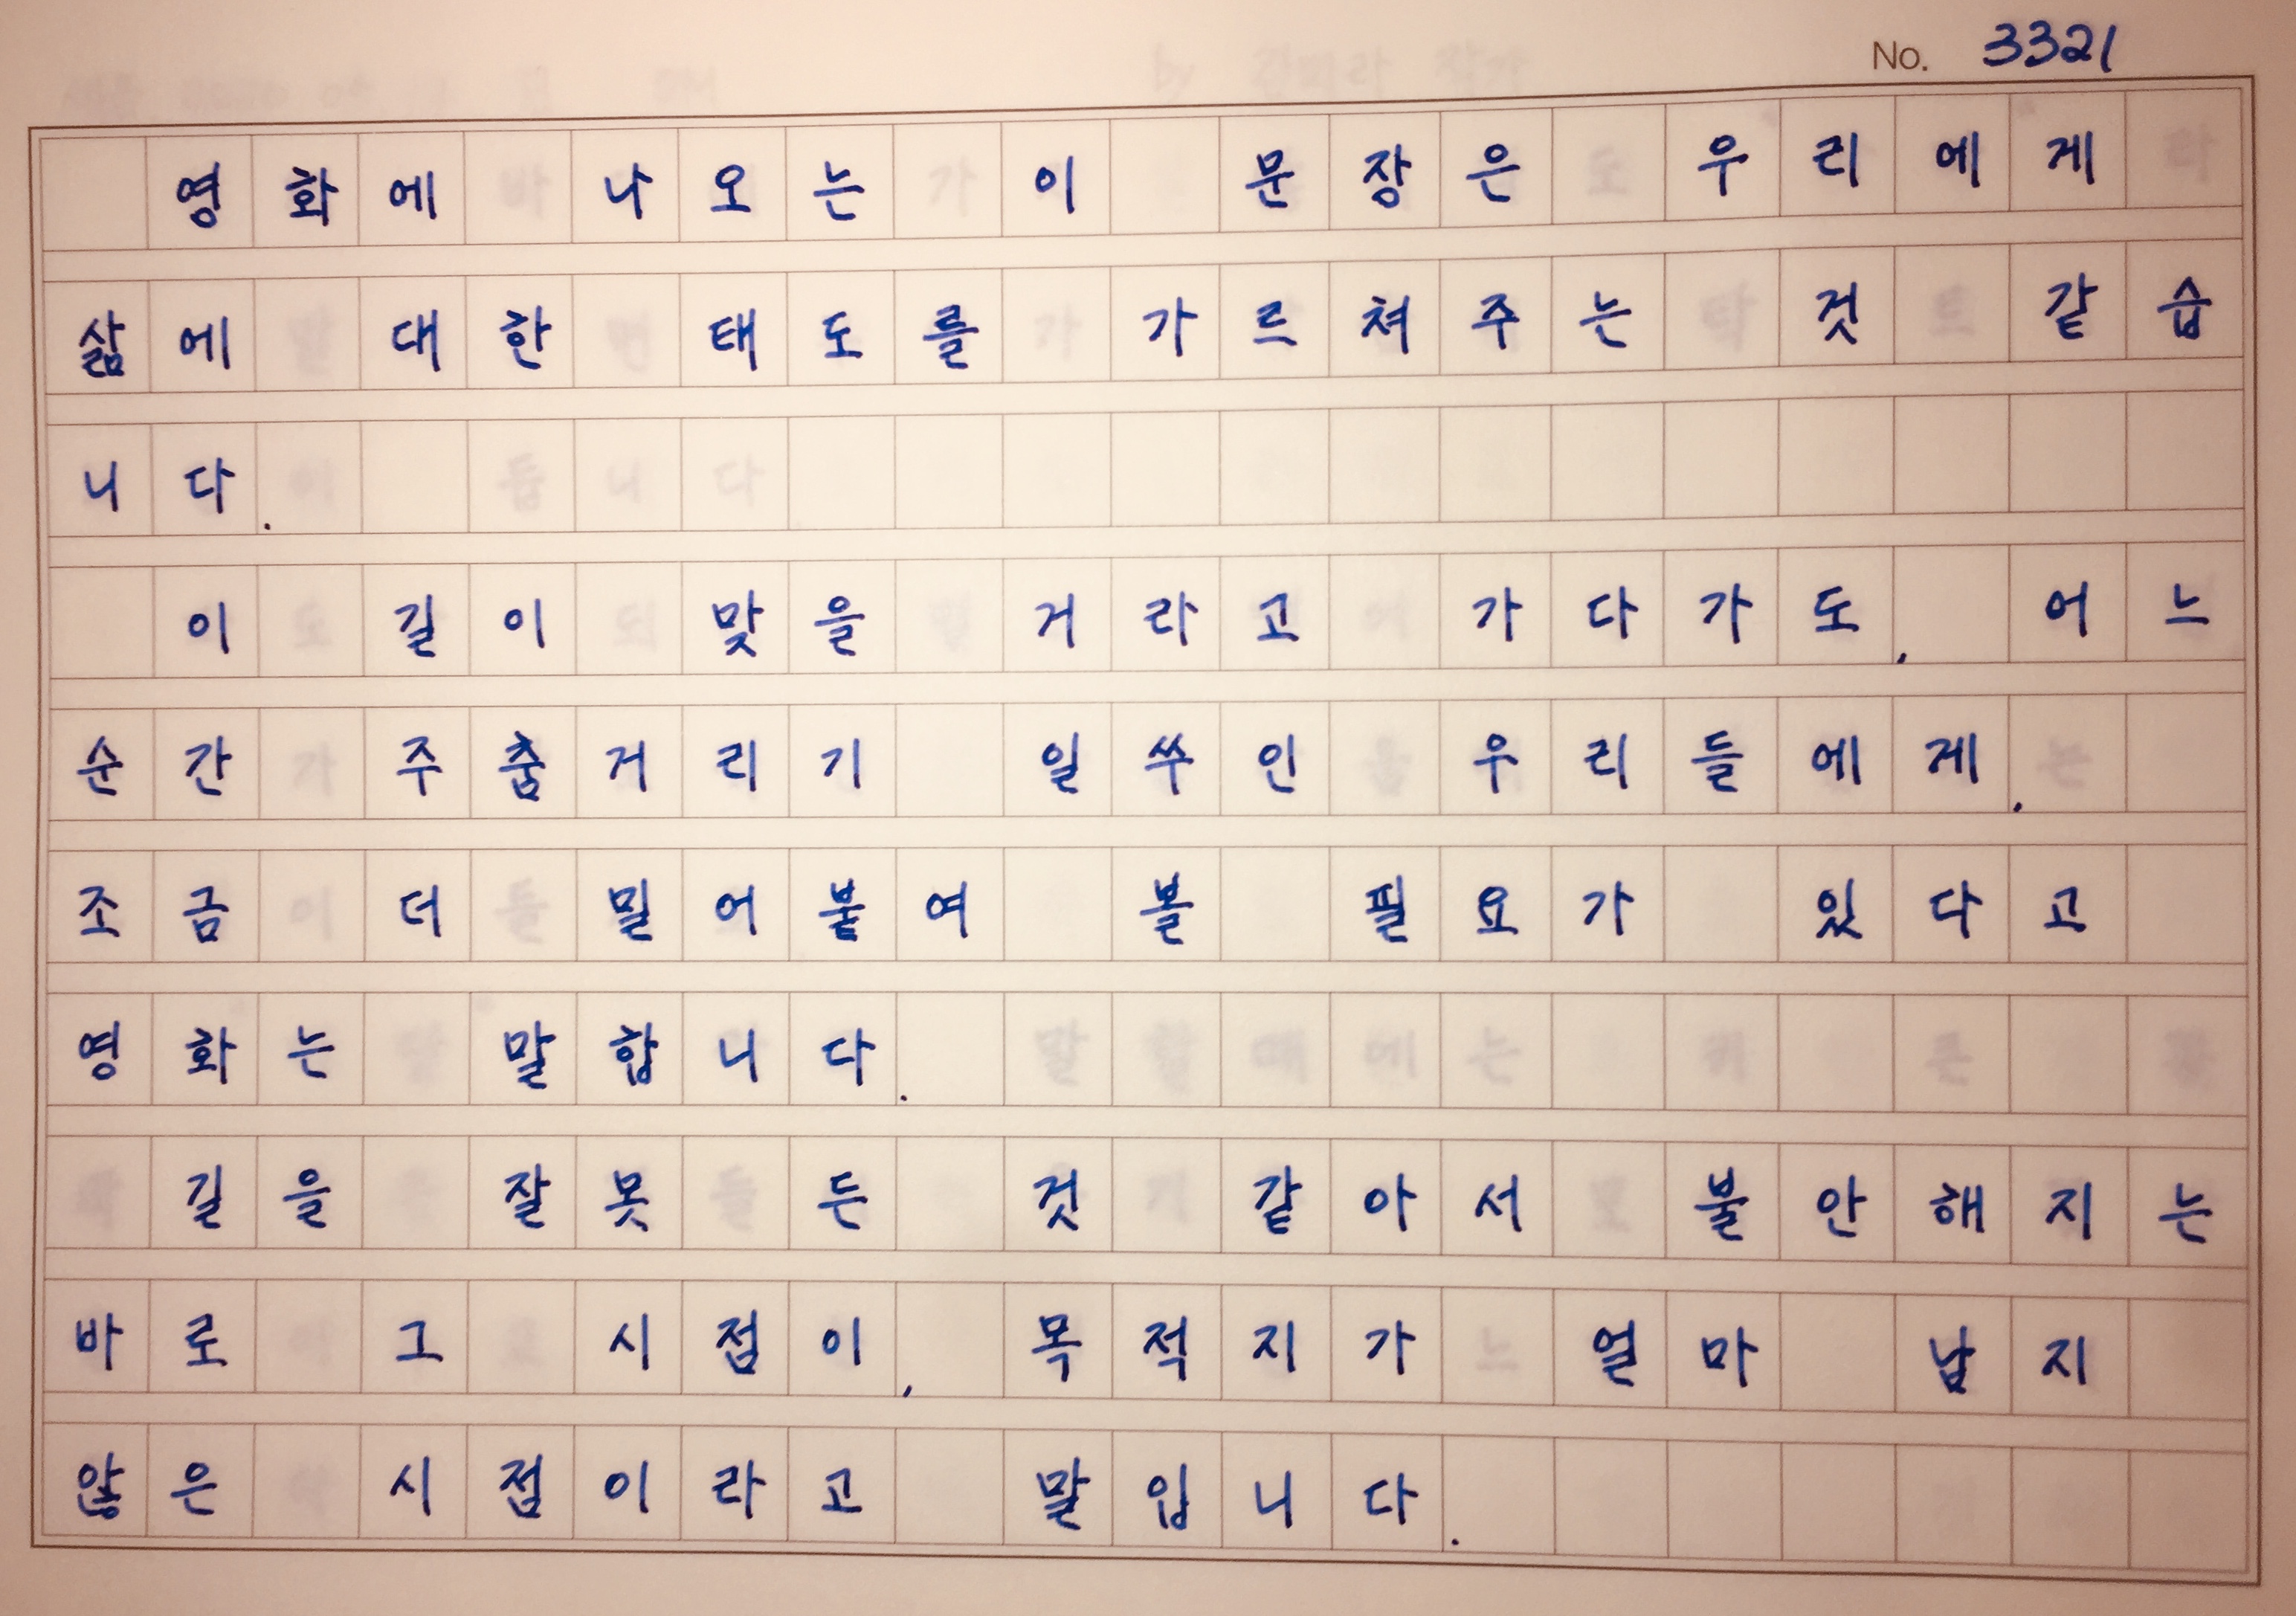 No. 3321
영화에 나오는 이 문장은 우리에게
삶에 대한 태도를 가르쳐주는 것 같습
니다.
이 길이 맞을 거라고 가다가도, 어느
순간 주춤거리기 일쑤인 우리들에게,
조금 더 밀어붙여 볼 필요가 있다고
영화는 말합니다.
길을 잘못 든 것 같아서 불안해지는
바로 그 시점이, 목적지가 얼마 남지
않은 시점이라고 말입니다.